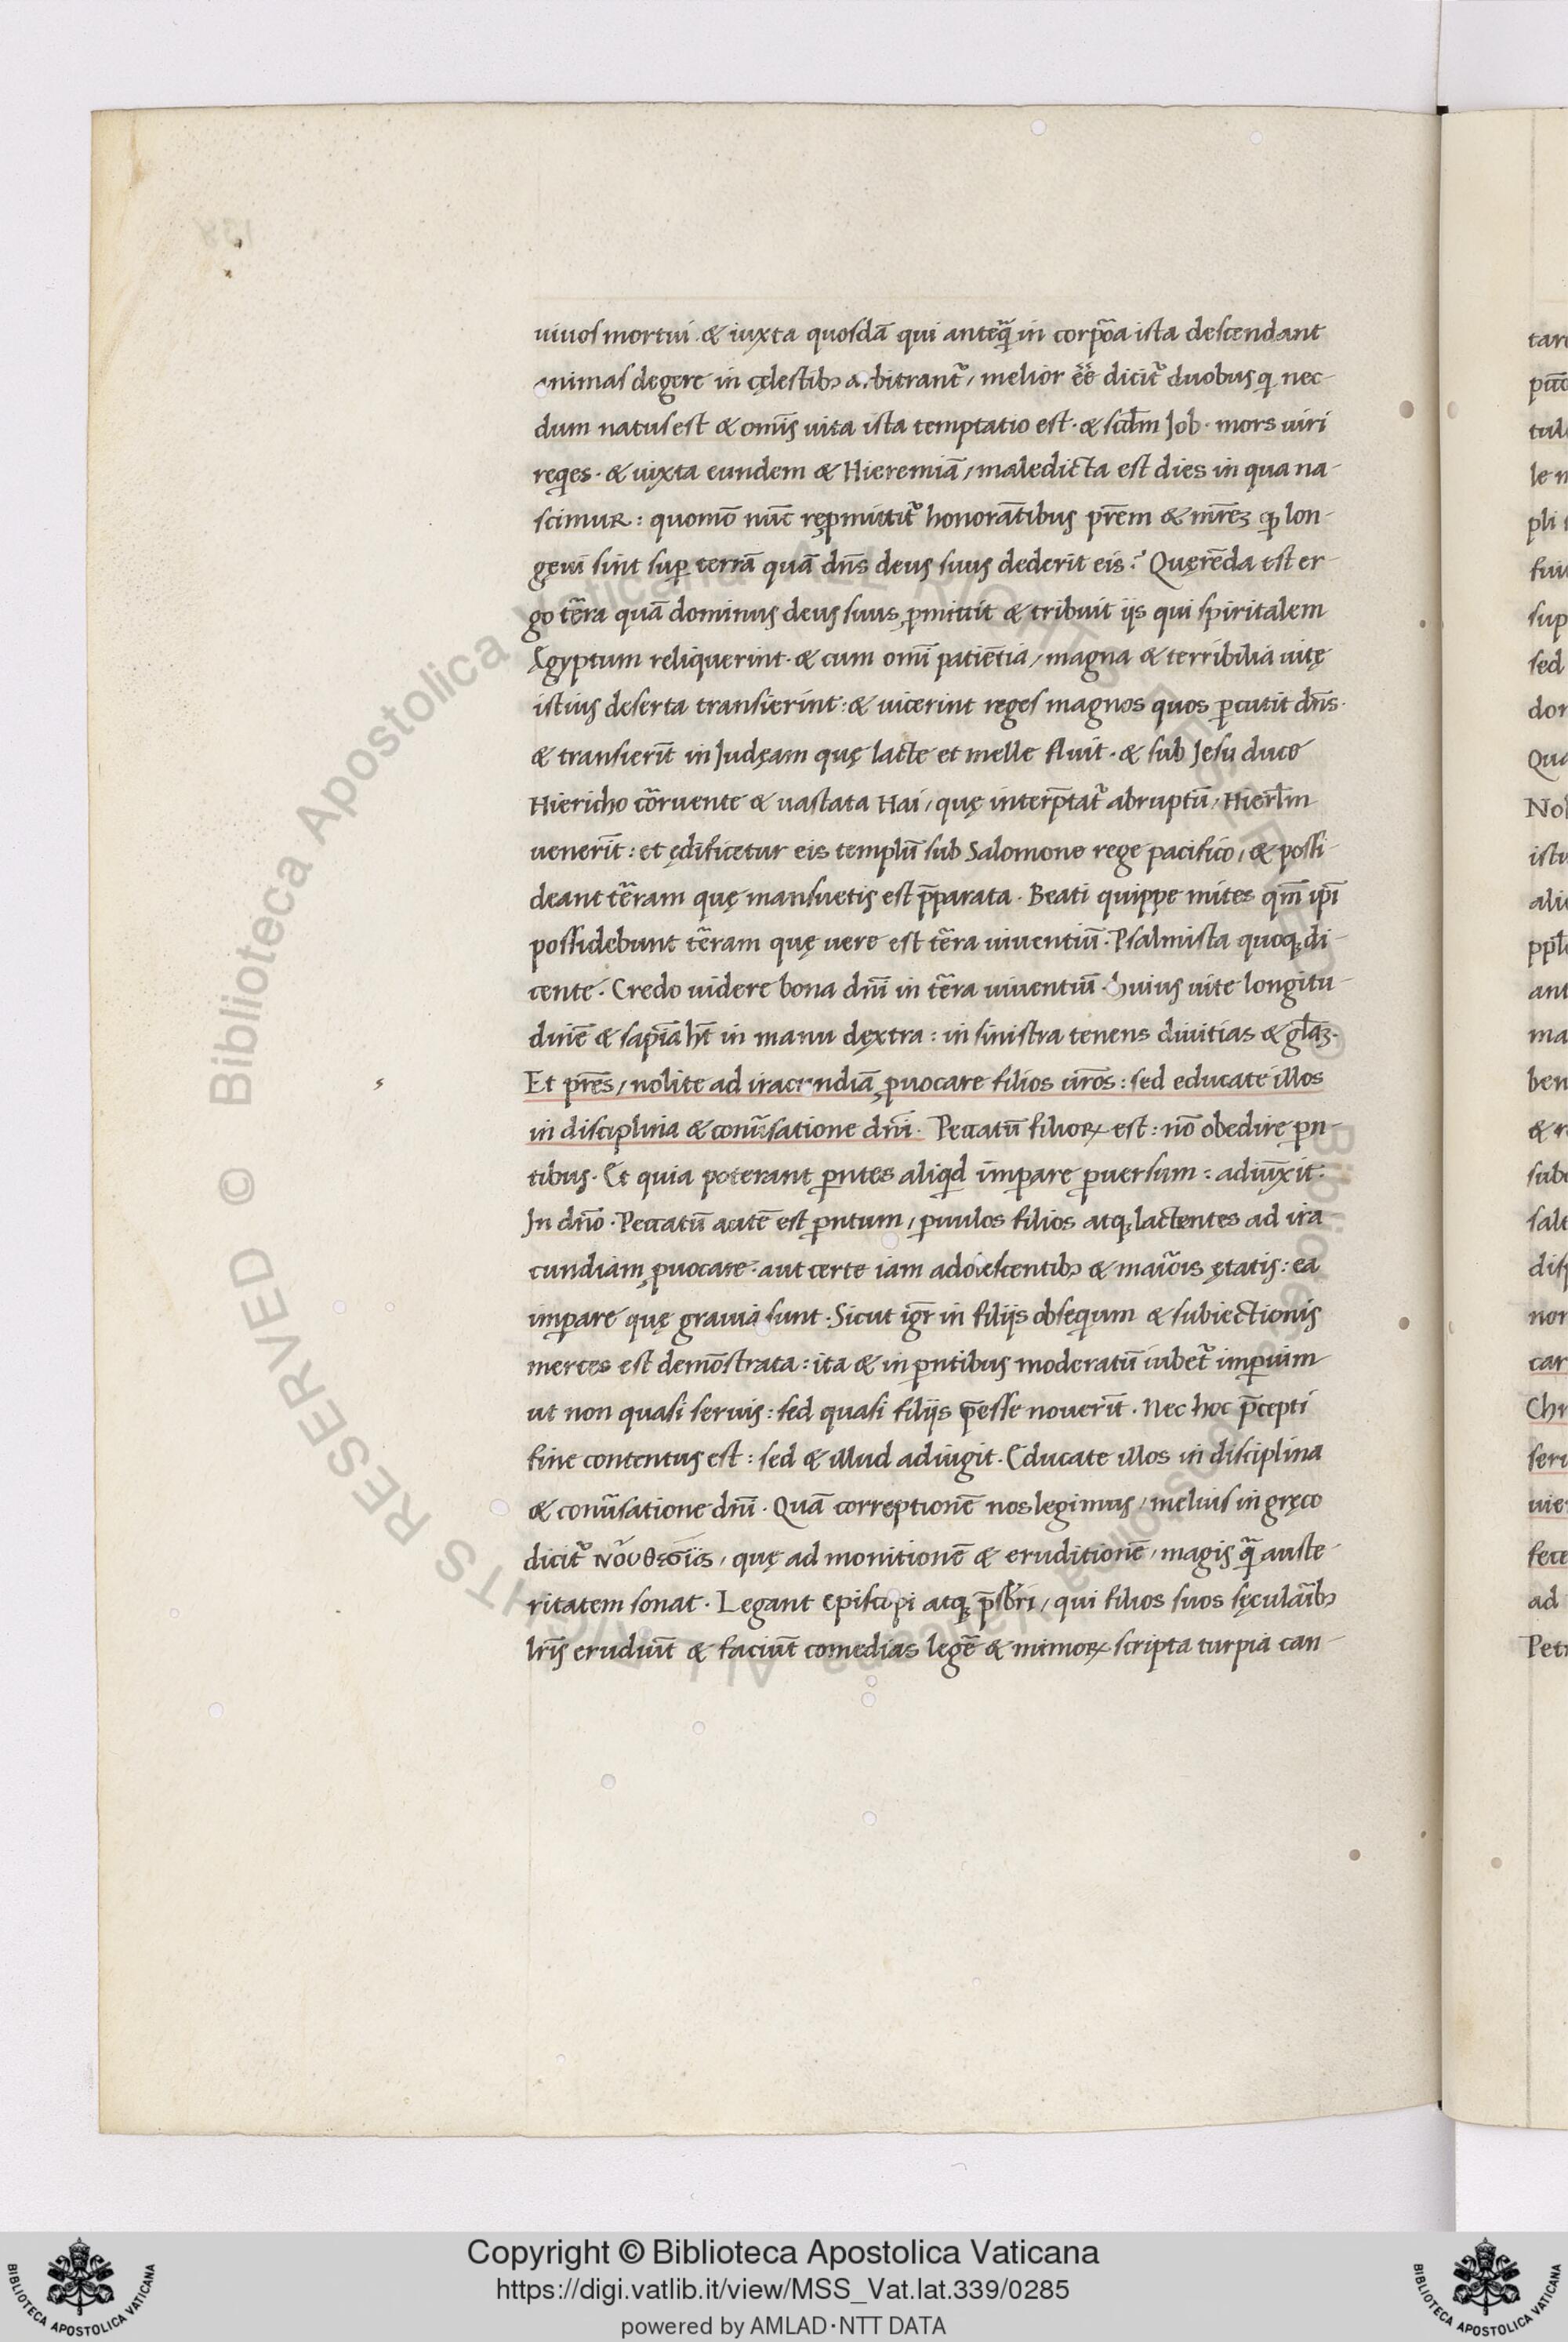 uiuos mortui · & iuxta quosdā qui anteq̄̄ in corp̄oa ista descendant
animas degere in cęlestibꝫ arbitrant᷑, melior ēē dicit᷑ duobus q nec-
dum natus est & om̄is uita ista temptatio est · & scdm̄ Job · mors uiri
reqes · & iuxta eundem & Hieremiā, maledicta est dies in qua na-
scimur : quomō nūc repmittit᷑ honorātibus pr̄em & mr̄eꝫ ꝙ lon-
gęui sint suꝑ terrā quā dn̄s deus suus dederit eis? Quęrēda est er-
go tēra quā dominus deus suus ꝓmittit & tribuit ijs qui spiritalem
Ęgyptum reliquerint · & cum omī patiētia, magna & terribilia uitę
istius deserta transierint : & uicerint reges magnos quos ꝑcutit dn̄s ·
& transierīt in Judęam quę lacte et melle fluit · & sub Jesu duce
Hiericho cōruente & uastata Hai, quę interp̄tat᷑ abruptū, Hierl̄m
uenerīt : et ędificetur eis templū sub Salomone rege pacifico, & possi-
deant tēram quę mansuetis est p̄parata · Beati quippe mites qm̄ ip̄i
possidebunt tēram quę uere est tēra uiuentiū · Psalmista quoqꝫ di-
cente · Credo uidere bona dn̄i in tēra uiuentiū · huius uite longitu-
dinē & sapīa ht̄ in manu dęxtra : in sinistra tenens diuitias & gl̄aꝫ ·
Et pr̄es, nolite ad iracundiā ꝓuocare filios ūros : sed educate illos
in disciplina & conūsatione dn̄i · Peccatū filioꝝ est : nō obedire ꝑn-
tibus · Et quia poterant ꝑntes aliqd imꝑare ꝑuersum : adiūxit ·
In dn̄o · Peccatū autē est ꝑntum, ꝑuulos filios atqꝫ lactentes ad ira-
cundiam ꝓuocare · aut certe iam adolescentibꝫ & maiōis ętatis : ea
imꝑare quę grauia sunt · Sicut igr̄ in filijs obsequm & subiectionis
merces est demōstrata : ita & in ꝑntibus moderatū iubet᷑ imꝑium
ut non quasi seruis : sed quasi filijs p̄esse nouerīt · Nec hoc p̄cepti
fine contentus est : sed & illud adiūgit · Educate illos in disciplina
& conūsatione dn̄i · Quā correptionē nos legimus, melius in gręco
dicit᷑ νουθεσίις, quę ad monitionē & eruditionē, magis q̄̄ auste-
ritatem sonat · Legant episcopi atqꝫ p̄sbr̄i, qui filios suos sęculāibꝫ
lr̄is erudiūt & faciūt comedias legē & mimoꝝ scripta turpia can-
Copyright © Biblioteca Apostolica Vaticana
https://digi.vatlib.it/view/MSS_Vat.lat.339/0285
powered by AMLAD·NTT DATA